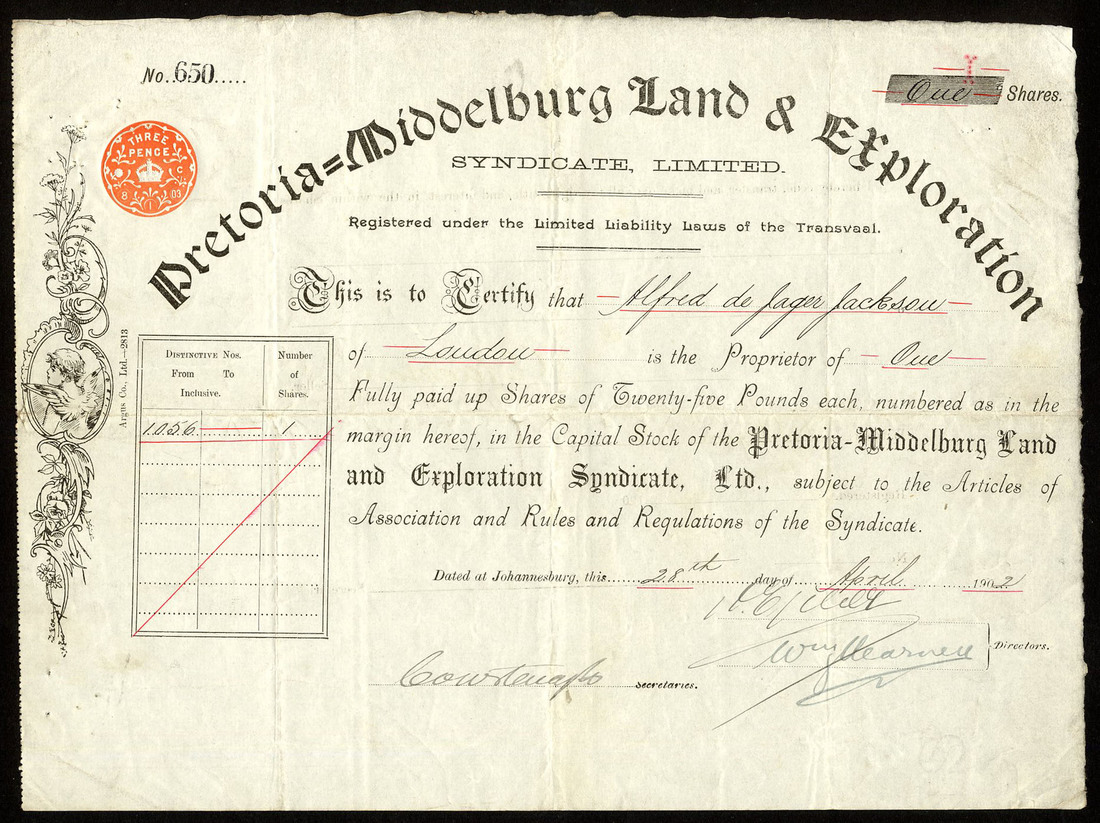 No. 650.....
One Shares.
THREE
PENCE
8 1 03
Pretoria=Middelburg Land & Exploration
SYNDICATE, LIMITED.
Registered under the Limited Liability Laws of the Transvaal.
This is to Certify that — Alfred de Jager Jackson —
of — London — is the Proprietor of — One —
Fully paid up Shares of Twenty-five Pounds each, numbered as in the
margin hereof, in the Capital Stock of the Pretoria-Middelburg Land
and Exploration Syndicate, Ltd., subject to the Articles of
Association and Rules and Regulations of the Syndicate.
Argus Co., Ltd.—2813
Distinctive Nos. Number
From To of
Inclusive. Shares.
1056 — 1
Dated at Johannesburg, this 28th day of April 1902
Directors.
Secretaries.